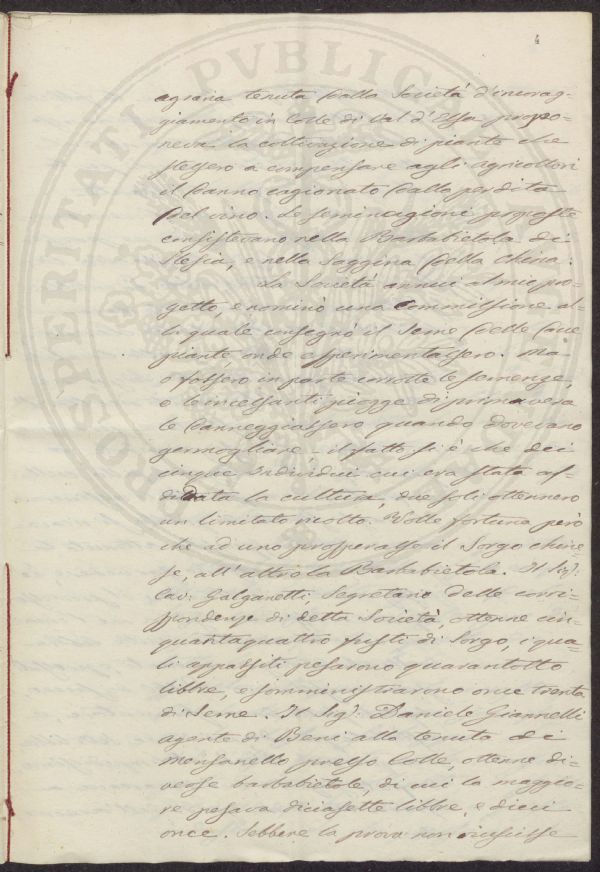 4
agraria tenuta dalla Società d'incorag-
giamento in Colle di Val d'Elsa propo-
neva la coltivazione di piante che
stessero a compensare agli agricoltori
il danno cagionato dalla perdita
del vino. Le seminagioni proposte
consistevano nella Barbabietola di
Slesia, e nella Saggina della China.
La Società annuì al mio pro-
getto, e nominò una Commissione al-
la quale consegnò il seme delle due
piante onde esperimentassero. Ma
o fossero in parte corrotte le semenze,
o le incessanti piogge di primavera
le danneggiassero quando dovevano
germogliare, il fatto si è che dei
cinque individui cui era stata af-
fidata la cultura, due soli ottennero
un limitato risolto. Volle fortuna però
che ad uno prosperasse il Sorgo chine-
se, all'altro la Barbabietola. Il Sigr.
Cav. Galganetti, Segretario delle corri-
spondenze di detta Società, ottenne cin-
quantaquattro fusti di Sorgo, i qua-
li appassiti pesarono quarantotto
libbre, e somministrarono once trenta
di seme. Il Sigr. Daniele Giannelli
agente di Beni alla tenuta di
Monsanello presso Colle, ottenne di-
verse barbabietole, di cui la maggio-
re pesava diciasette libbre, e dieci
once. Sebbene la prova non riuscisse
PROSPERITATI PVBLICAE